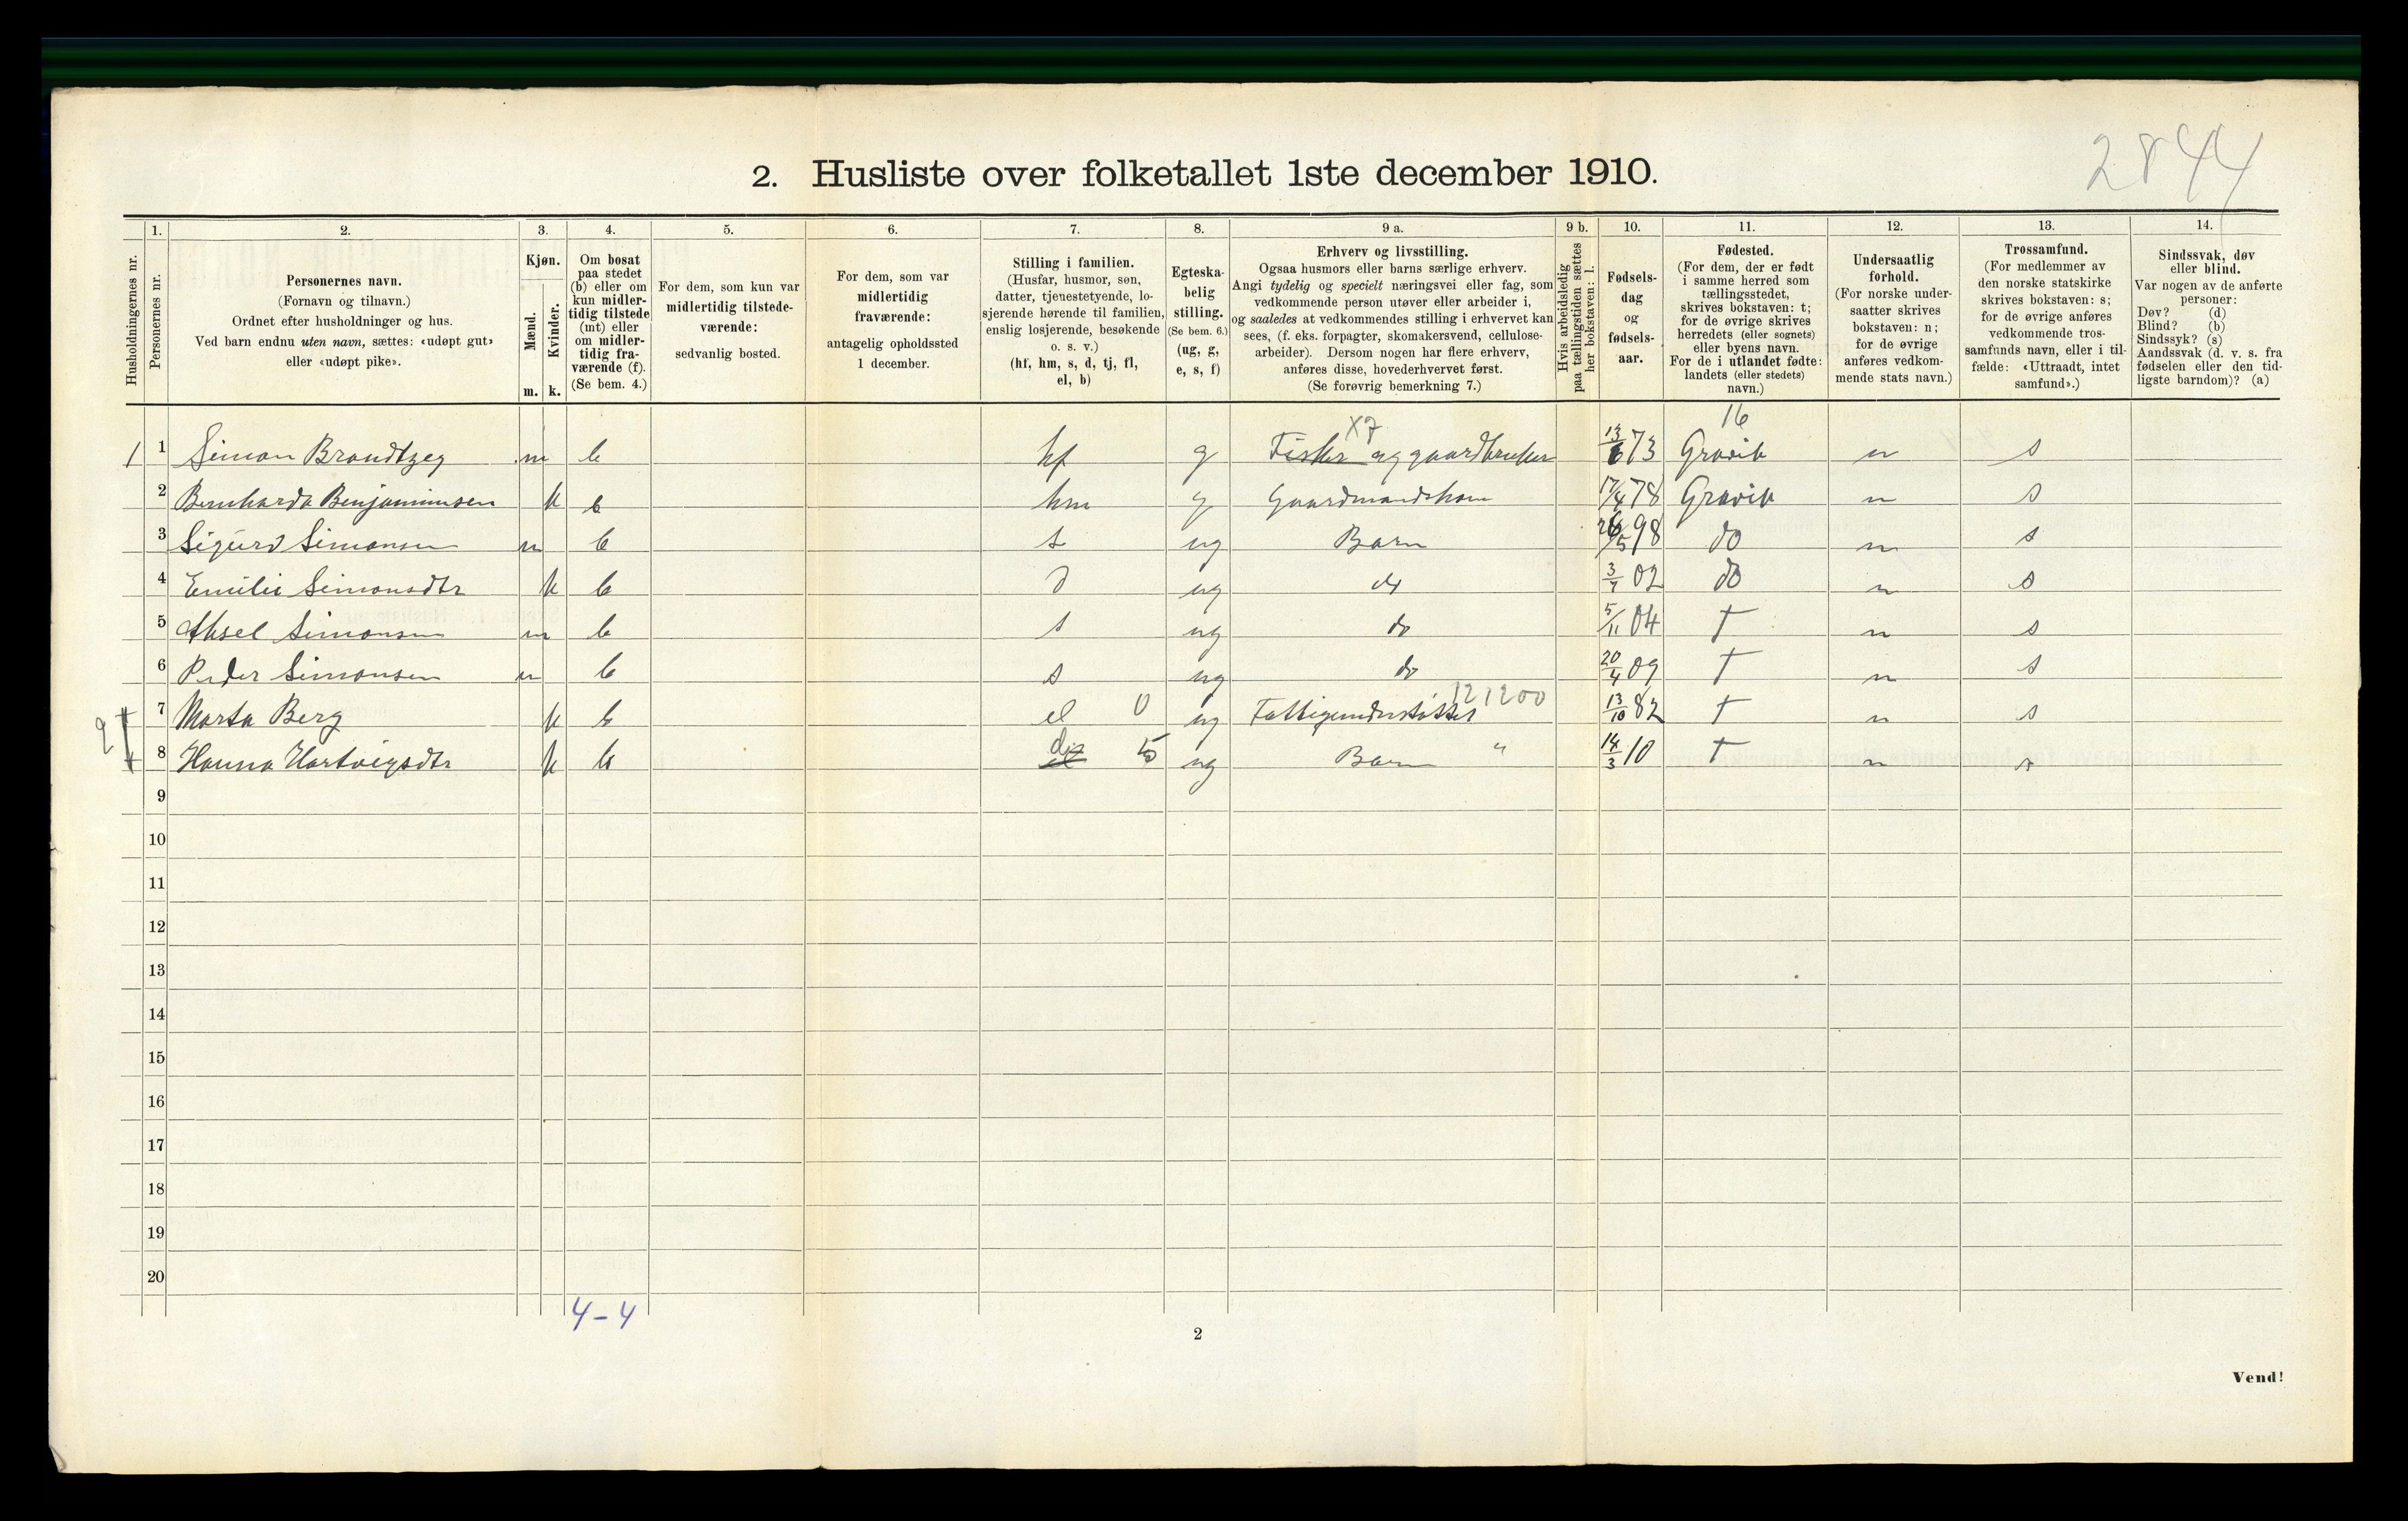 2844
2. Husliste over folketallet 1ste december 1910.
Husholdningernes nr.
1. Personernes nr.
2. Personernes navn. (Fornavn og tilnavn.) Ordnet efter husholdninger og hus. Ved barn endnu uten navn, sættes: «udøpt gut» eller «udøpt pike».
3. Kjøn. Mænd. m. Kvinder. k.
4. Om bosat paa stedet (b) eller om kun midlertidig tilstede (mt) eller om midlertidig fraværende (f). (Se bem. 4.)
5. For dem, som kun var midlertidig tilstedeværende: sedvanlig bosted.
6. For dem, som var midlertidig fraværende: antagelig opholdssted 1 december.
7. Stilling i familien. (Husfar, husmor, søn, datter, tjenestetyende, losjerende hørende til familien, enslig losjerende, besøkende o. s. v.) (hf, hm, s, d, tj, fl, el, b)
8. Egteskabelig stilling. (Se bem. 6.) (ug, g, e, s, f)
9 a. Erhverv og livsstilling. Ogsaa husmors eller barns særlige erhverv. Angi tydelig og specielt næringsvei eller fag, som vedkommende person utøver eller arbeider i, og saaledes at vedkommendes stilling i erhvervet kan sees, (f. eks. forpagter, skomakersvend, cellulosearbeider). Dersom nogen har flere erhverv, anføres disse, hovederhvervet først. (Se forøvrig bemerkning 7.)
9 b. Hvis arbeidsledig paa tællingstiden sættes her bokstaven: l.
10. Fødselsdag og fødselsaar.
11. Fødested. (For dem, der er født i samme herred som tællingsstedet, skrives bokstaven: t; for de øvrige skrives herredets (eller sognets) eller byens navn. For de i utlandet fødte: landets (eller stedets) navn.)
12. Undersaatlig forhold. (For norske undersaatter skrives bokstaven: n; for de øvrige anføres vedkommende stats navn.)
13. Trossamfund. (For medlemmer av den norske statskirke skrives bokstaven: s; for de øvrige anføres vedkommende trossamfunds navn, eller i tilfælde: «Uttraadt, intet samfund».)
14. Sindssvak, døv eller blind. Var nogen av de anførte personer: Døv? (d) Blind? (b) Sindssyk? (s) Aandssvak (d. v. s. fra fødselen eller den tidligste barndom)? (a)
X7 16
1 1 Simon Brandtzeg m b hf g Fisker og gaardbruker 13/6 73 Gravik n s
2 Bernharda Benjaminsen k b hm g Gaardmandskone 17/4 78 Gravik n s
3 Sigurd Simonsen m b s ug Barn 26/5 98 do n s
4 Emilie Simonsdtr k b d ug do 3/7 02 do n s
5 Aksel Simonsen m b s ug do 5/11 04 t n s
6 Peder Simonsen m b s ug do 20/4 09 t n s
2 7 Marta Berg k b el 0 ug Fattigunderstøttet 121200 13/10 82 t n s
8 Hanna Hartvigsdtr k b d 5 ug Barn " 14/3 10 t n s
9
10
11
12
13
14
15
16
17
18
19
20
4-4
2
Vend!